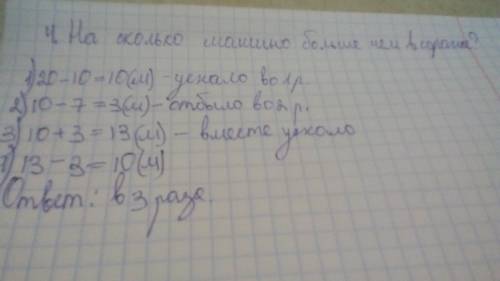 4. На сколько машино больше чем второв?
1) 20 - 10 = 10 (м) - уехало во 1 р.
2) 10 - 7 = 3 (м) - отбыло во 2 р.
3) 10 + 3 = 13 (м) - вместе уехало
4) 13 - 3 = 10 (м)
Ответ: в 3 раза.